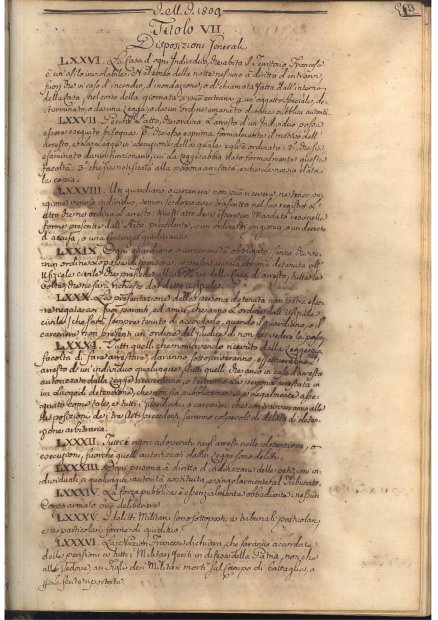 I.M.I. 1809.
Titolo VII.
Disposizioni Generali.
LXXVI. La Casa d'ogni Individuo, che abita il Territorio Francese
è un'asilo inviolabile. Nel tempo della notte nessuno à diritto d'entrarvi
fuori che in caso d'incendio, d'inondazione, o di chiamata fatta dall'interno
della Casa. Nel corso della giornata si può entrare per un oggetto speciale, de-
terminato, o da una Legge, o da un'ordine emanato da alcuna pubblica autorità
LXXVII. Perchè l'atto, che ordina l'arresto d'un Individuo possa
essere eseguito bisogna 1º che esprima formalmente il motivo dell'
arresto, e la Legge in esecuzione della quale egli è ordinato: 2º che sia
emanato da un funzionario, cui la Legge abbia dato formalmente questa
facoltà: 3º che sia notificato alla persona arrestata, e che le ne sia data
la copia.
LXXVIII. Un guardiano, o carceriere non può ricevere, ne tener pri-
gione verun individuo, se non se dopo aver trascritto nel suo registro l'
atto che ne ordina l'arresto. Quest'atto dev'essere un Mandato reso nelle
forme prescritte dall'Arto. precedente, o un ordine di prigionia, o un decreto
di accusa, o una sentenza giudiziaria.
LXXIX. Ogni guardiano, o carceriere è obbligato, senza che ve-
run ordine lo possa dispensare, a presentare la persona detenuta all'
Ufficiale civile che presiede alla polizia della Casa di arresto, tutte le
volte, che ne sarà richiesto da detto Ufficiale.
LXXX. La presentazione della persona detenuta non potrà esse-
re negata ai suoi parenti, ed amici, che avranno l'ordine dell'Ufficiale
civile, che sarà sempre tenuto d'accordarlo, quando il guardiano, o il
carceriere non presenti un ordine del giudice di non far vedere la persona
LXXXI. Tutti quelli che non avendo ricevuto dalla Legge la
facoltà di fare arrestare, daranno, sottoscriveranno, eseguiranno l'
arresto di un individuo qualunque, tutti quelli che anco in caso d'arresto
autorizzato dalla Legge riceveranno, o terranno la persona arrestata in
un luogo di detenzione, che non sia pubblicamente, e legalmente dise-
gnato come tale, e tutti i guardiani, o carcerieri che contravverranno alle
disposizioni de' tre Arti. precedenti saranno colpevoli di delitto di deten-
zione arbitraria.
LXXXII. Tutti i rigori adoperati negli arresti, nelle detenzioni, o
esecuzioni, fuorchè quelli autorizzati dalla Legge sono delitti.
LXXXIII. Ogni persona à diritto d'indirizzare delle petizioni in-
dividuali a qualunque autorità costituita, e singolarmente al Tribunato.
LXXXIV. La forza pubblica è essenzialmente obbediente: nessun
Corpo armato può deliberare.
LXXXV. I delitti Militari sono sottoposti a' tribunali particolari,
e a particolari forme di giudizio.
LXXXVI. La Nazion Francese dichiara, che saranno accordate
delle pensioni a tutti i Militari feriti in difesa della Patria, non che
alle Vedove, ai Figli dei Militari morti sul Campo di battaglia, o